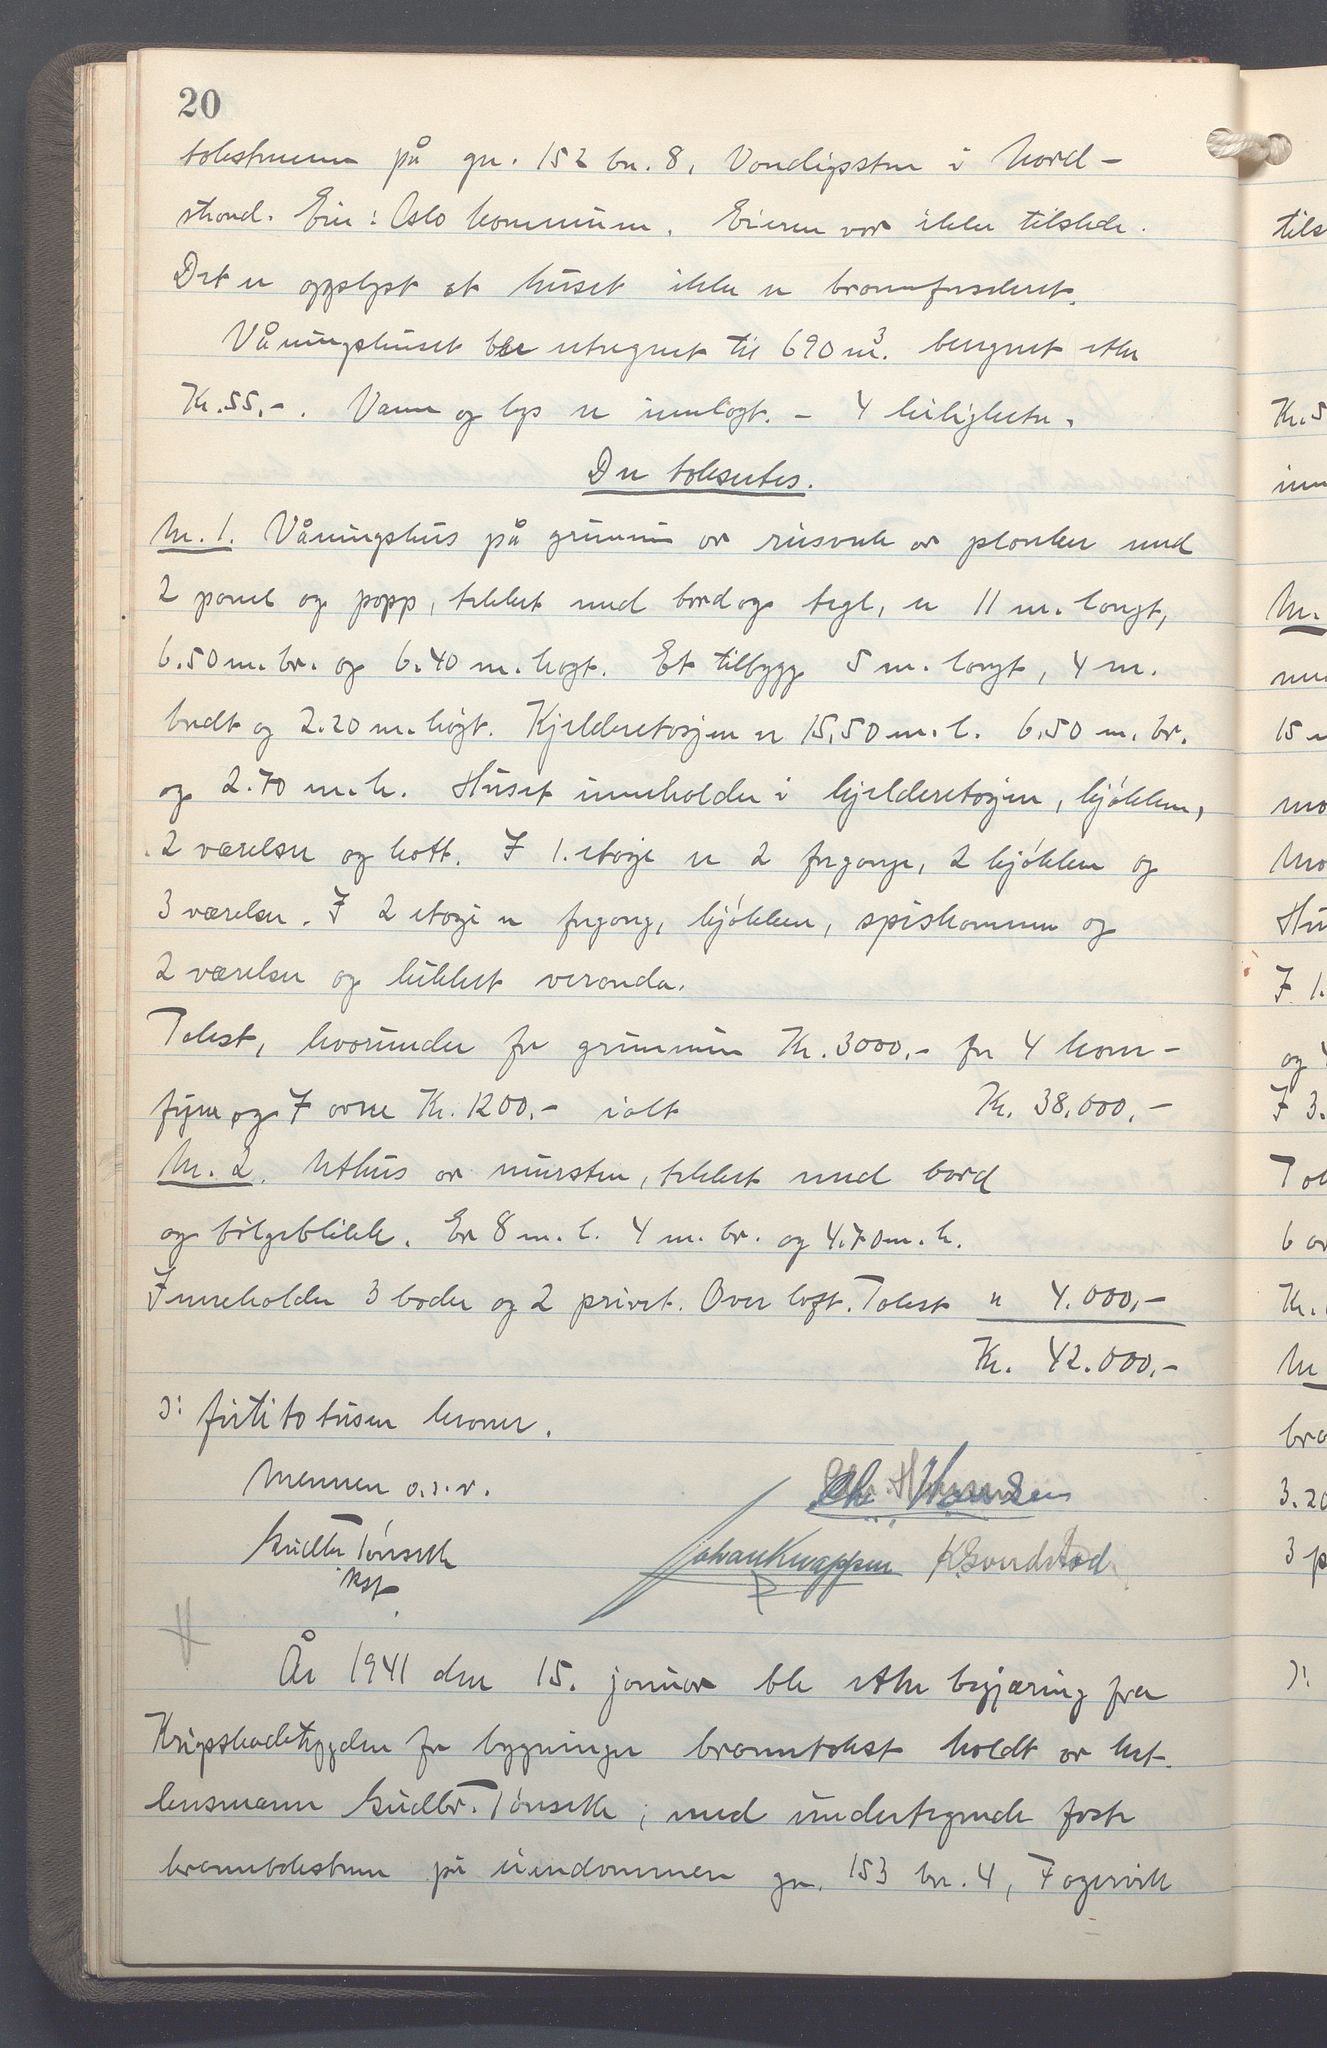 20
takstmenn på gn. 152 bn. 8, i Nord-
strand. Eier: Oslo kommune. Eieren var ikke tilstede.
Det er opplyst at huset ikke er brannforsikret.
Våningshuset ble utregnet til 690 m³. beregnet etter
Kr. 55.-. Vann og lys er innlagt. - 4 leiligheter.
Der taksertes.
Nr. 1. Våningshus på grunnmur av reisverk av planker med
2 panel og papp, tekket med bord og tegl, er 11 m. langt,
6.50 m. br. og 6.40 m. høgt. Et tilbygg 5 m. langt, 4 m.
bredt og 2.20 m. høgt. Kjelderetasjen er 15,50 m. l. 6,50 m. br.
og 2.70 m. h. Huset inneholder i kjelderetasjen, kjøkken,
2 værelser og kott. I 1. etasje er 2 forganger, 2 kjøkken og
3 værelser. I 2 etasje er forgang, kjøkken, spiskammer og
2 værelser og lukket veranda.
Takst, hvorunder for grunnmur Kr. 3000.- for 4 kom-
fyrer og 7 ovner Kr. 1200.- ialt Kr. 38.000.-
Nr. 2. Uthus av murstein, tekket med bord
og bølgeblikk. Er 8 m. l. 4 m. br. og 4.70 m. h.
Inneholder 3 boder og 2 privet. Over loft. Takst " 4.000.-
Kr. 42.000.-
ɔ: førtito tusen kroner.
Mennen o.s.v.
Gudbr. Tønseth Chr. Hansen
Johan Knappen K Svendstad
År 1941 den 15. januar ble etter begjæring fra
Krigsskadetrygden for bygninger branntakst holdt av kst.
lensmann Gudbr. Tønseth, med undertegnede faste
branntakstmenn på eiendommen gn. 153 bn. 4, Fagervik
tils
Kr. 5
inn
Nr.
15 m
mo
Hu
I 1.
og 4
I 3.
Tak
6 ov
Kr.
Nr
bra
3.20
3 p
ɔ: